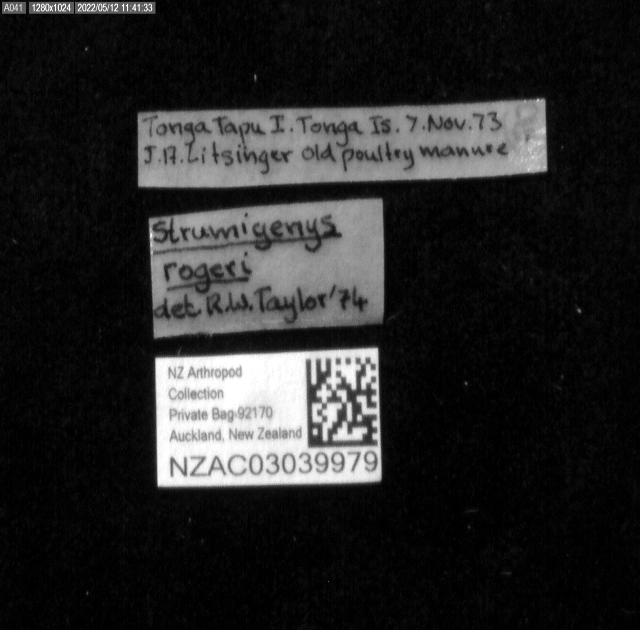 A041 1280x1024 2022/05/12 11:41:33
Tonga Tapu I. Tonga Is. 7. Nov. 73
J.A. Litsinger old poultry manure
Strumigenys
rogeri
det. R.W. Taylor '74
NZ Arthropod
Collection
Private Bag 92170
Auckland, New Zealand
NZAC03039979